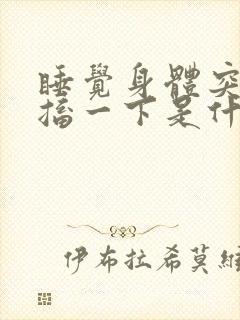 睡覺身體突
搐一下是什
伊布拉希莫維